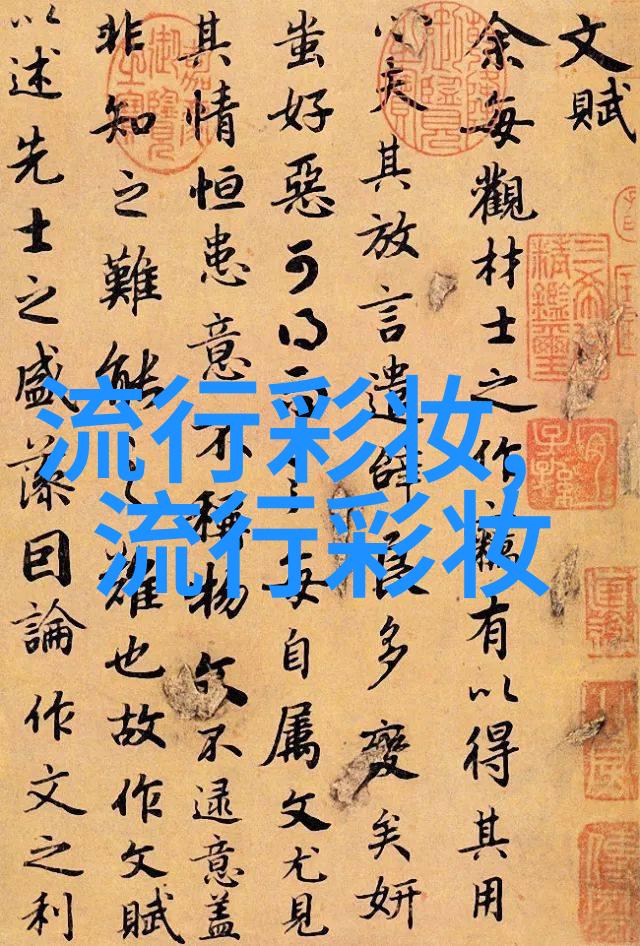 文賦
余每觀材士之作竊有以得其用
心夫其放言遣辭良多變矣妍
蚩好惡可得而言每自屬文尤見
其情恒患意不稱物文不逮意蓋
非知之難能之難也故作文賦
以述先士之盛藻因論作文之利
流行彩妆,
流行彩妆
三希堂精鑑璽
宜子孫